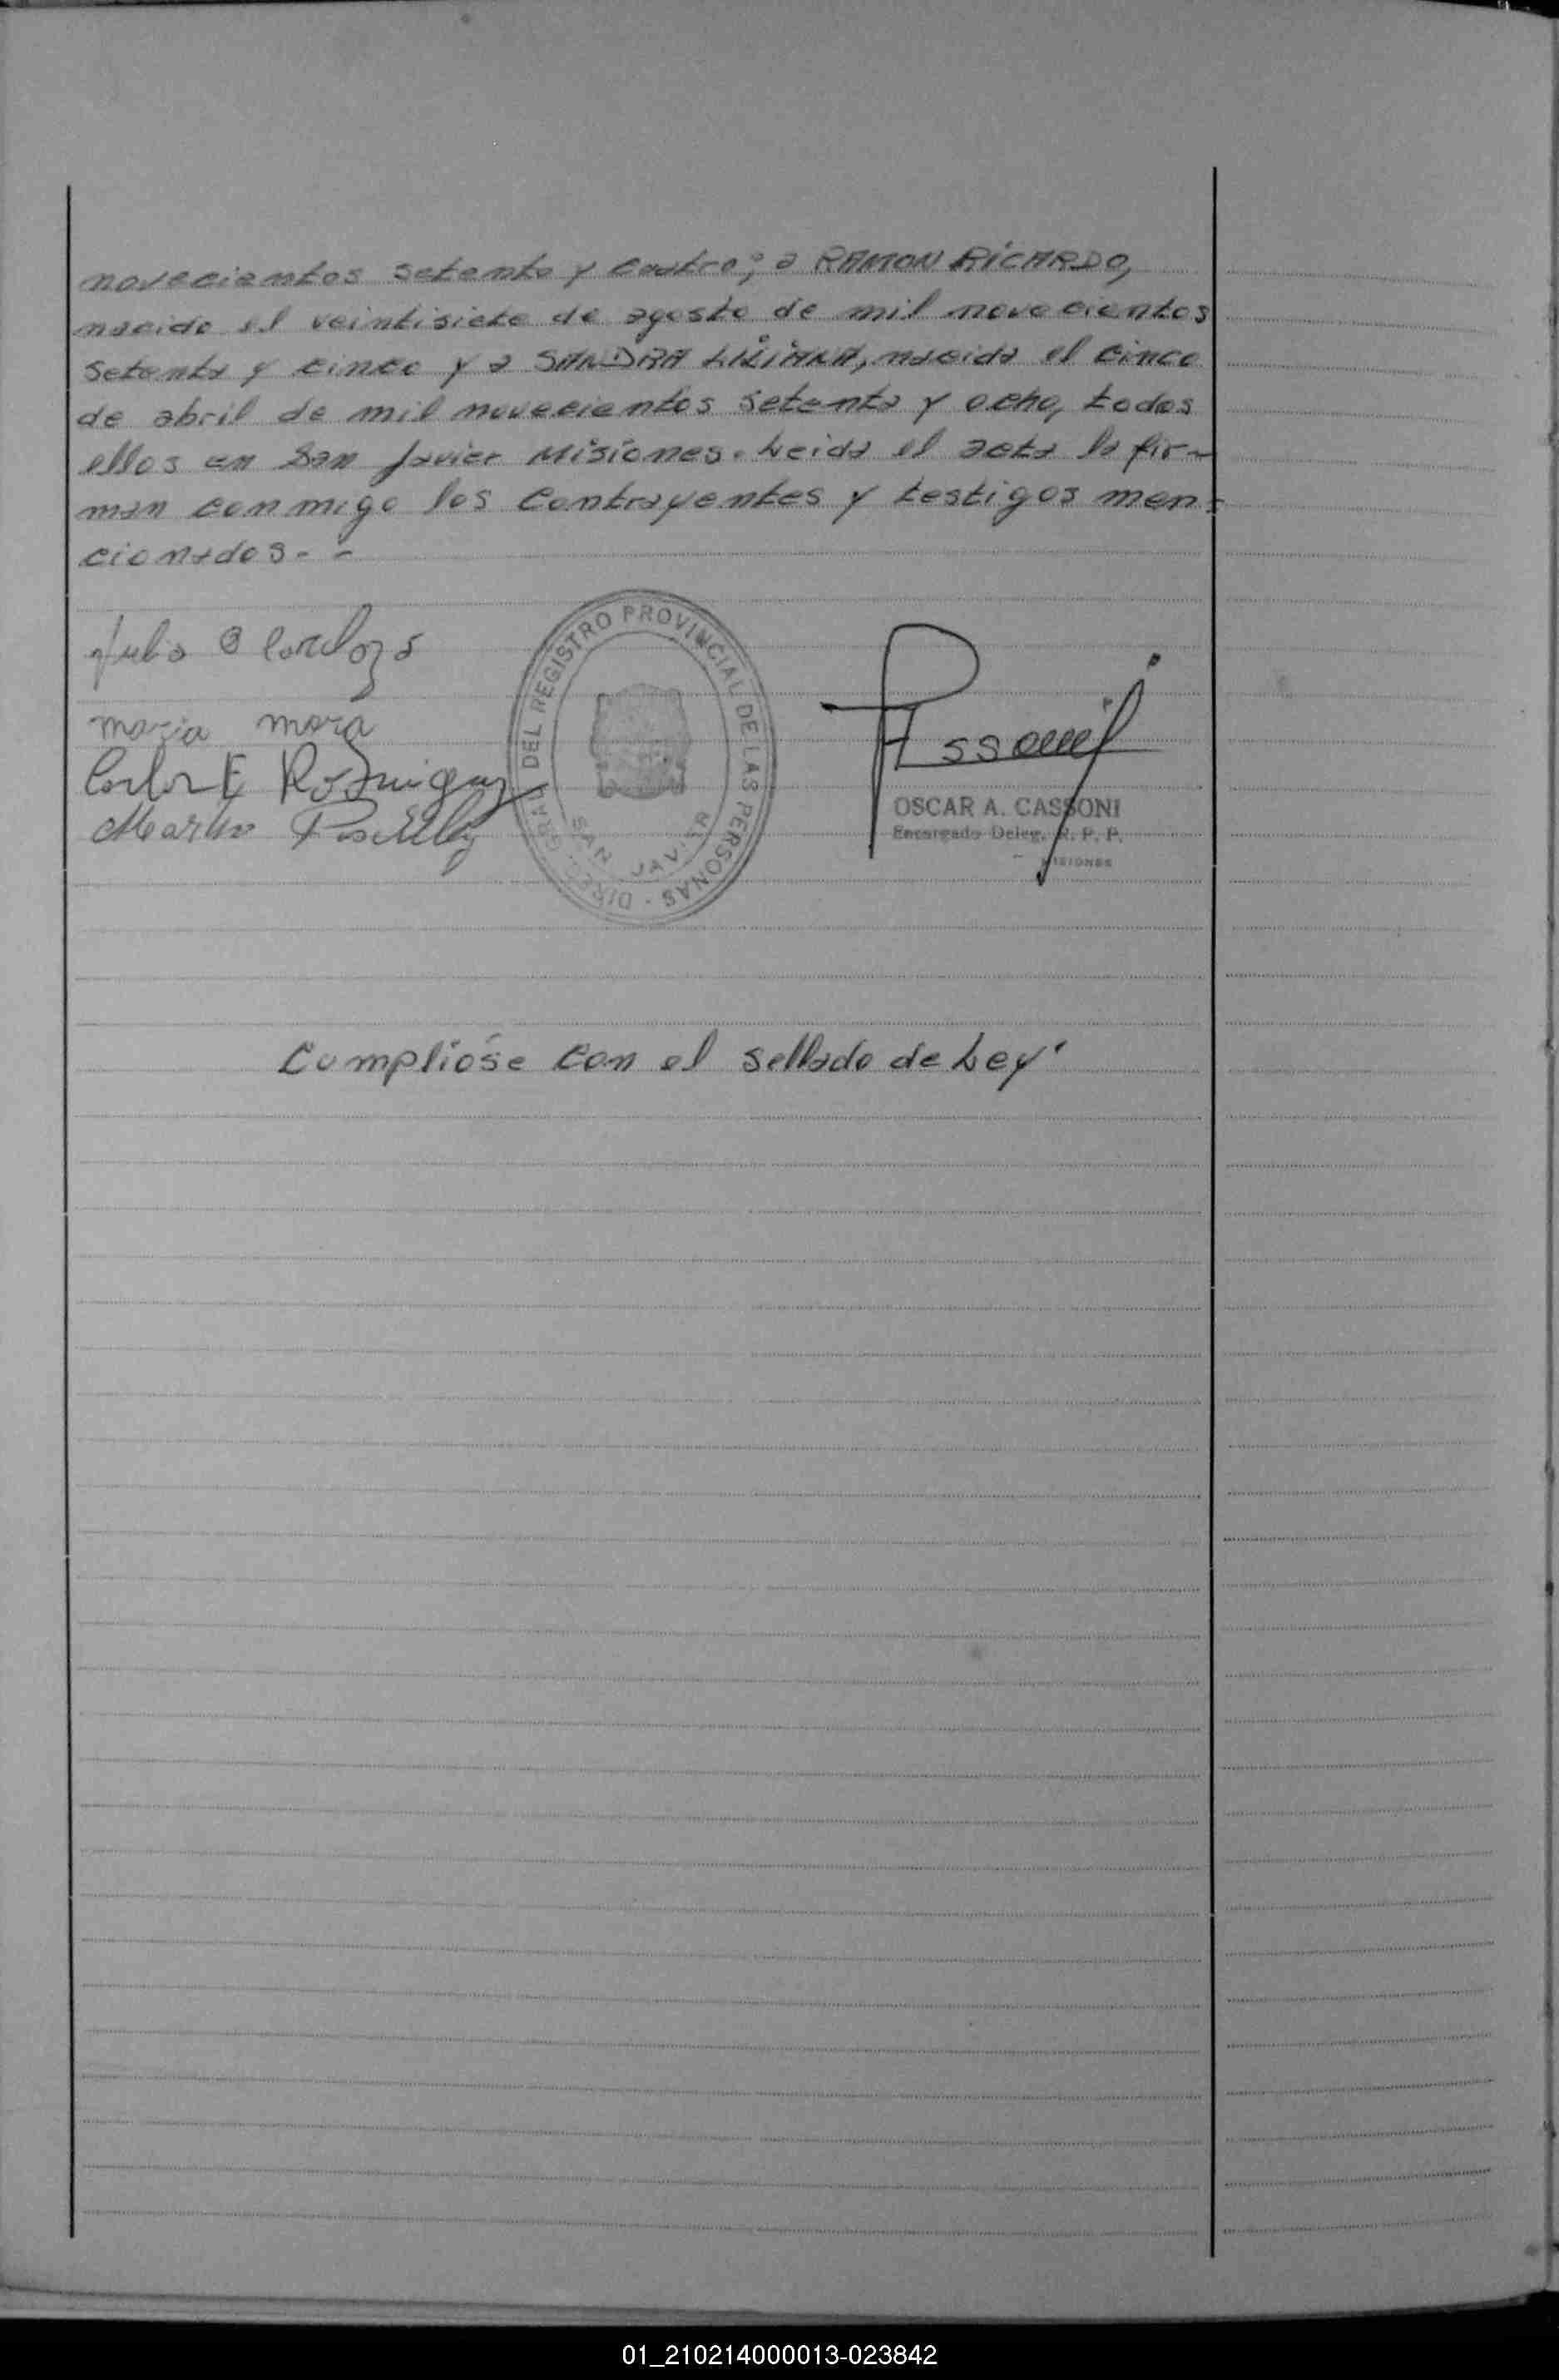 novecientos setenta y cuatro; a RAMON RICARDO,
nacido el veintisiete de agosto de mil novecientos
setenta y cinco y a SANDRA LILIANA, nacida el cinco
de abril de mil novecientos setenta y ocho, todos
ellos en San Javier Misiones. Leida el acta la fir-
man conmigo los contrayentes y testigos men-
cionados.-
Julio Cardozo
maria mora
Carlos E Rodriguez
DEL REGISTRO PROVINCIAL DE LAS PERSONAS - DIREC. GRAL.
SAN JAVIER
OSCAR A. CASSONI
Encargado Deleg. R. P. P.
MISIONES
Cumplióse con el sellado de Ley.
01_210214000013-023842